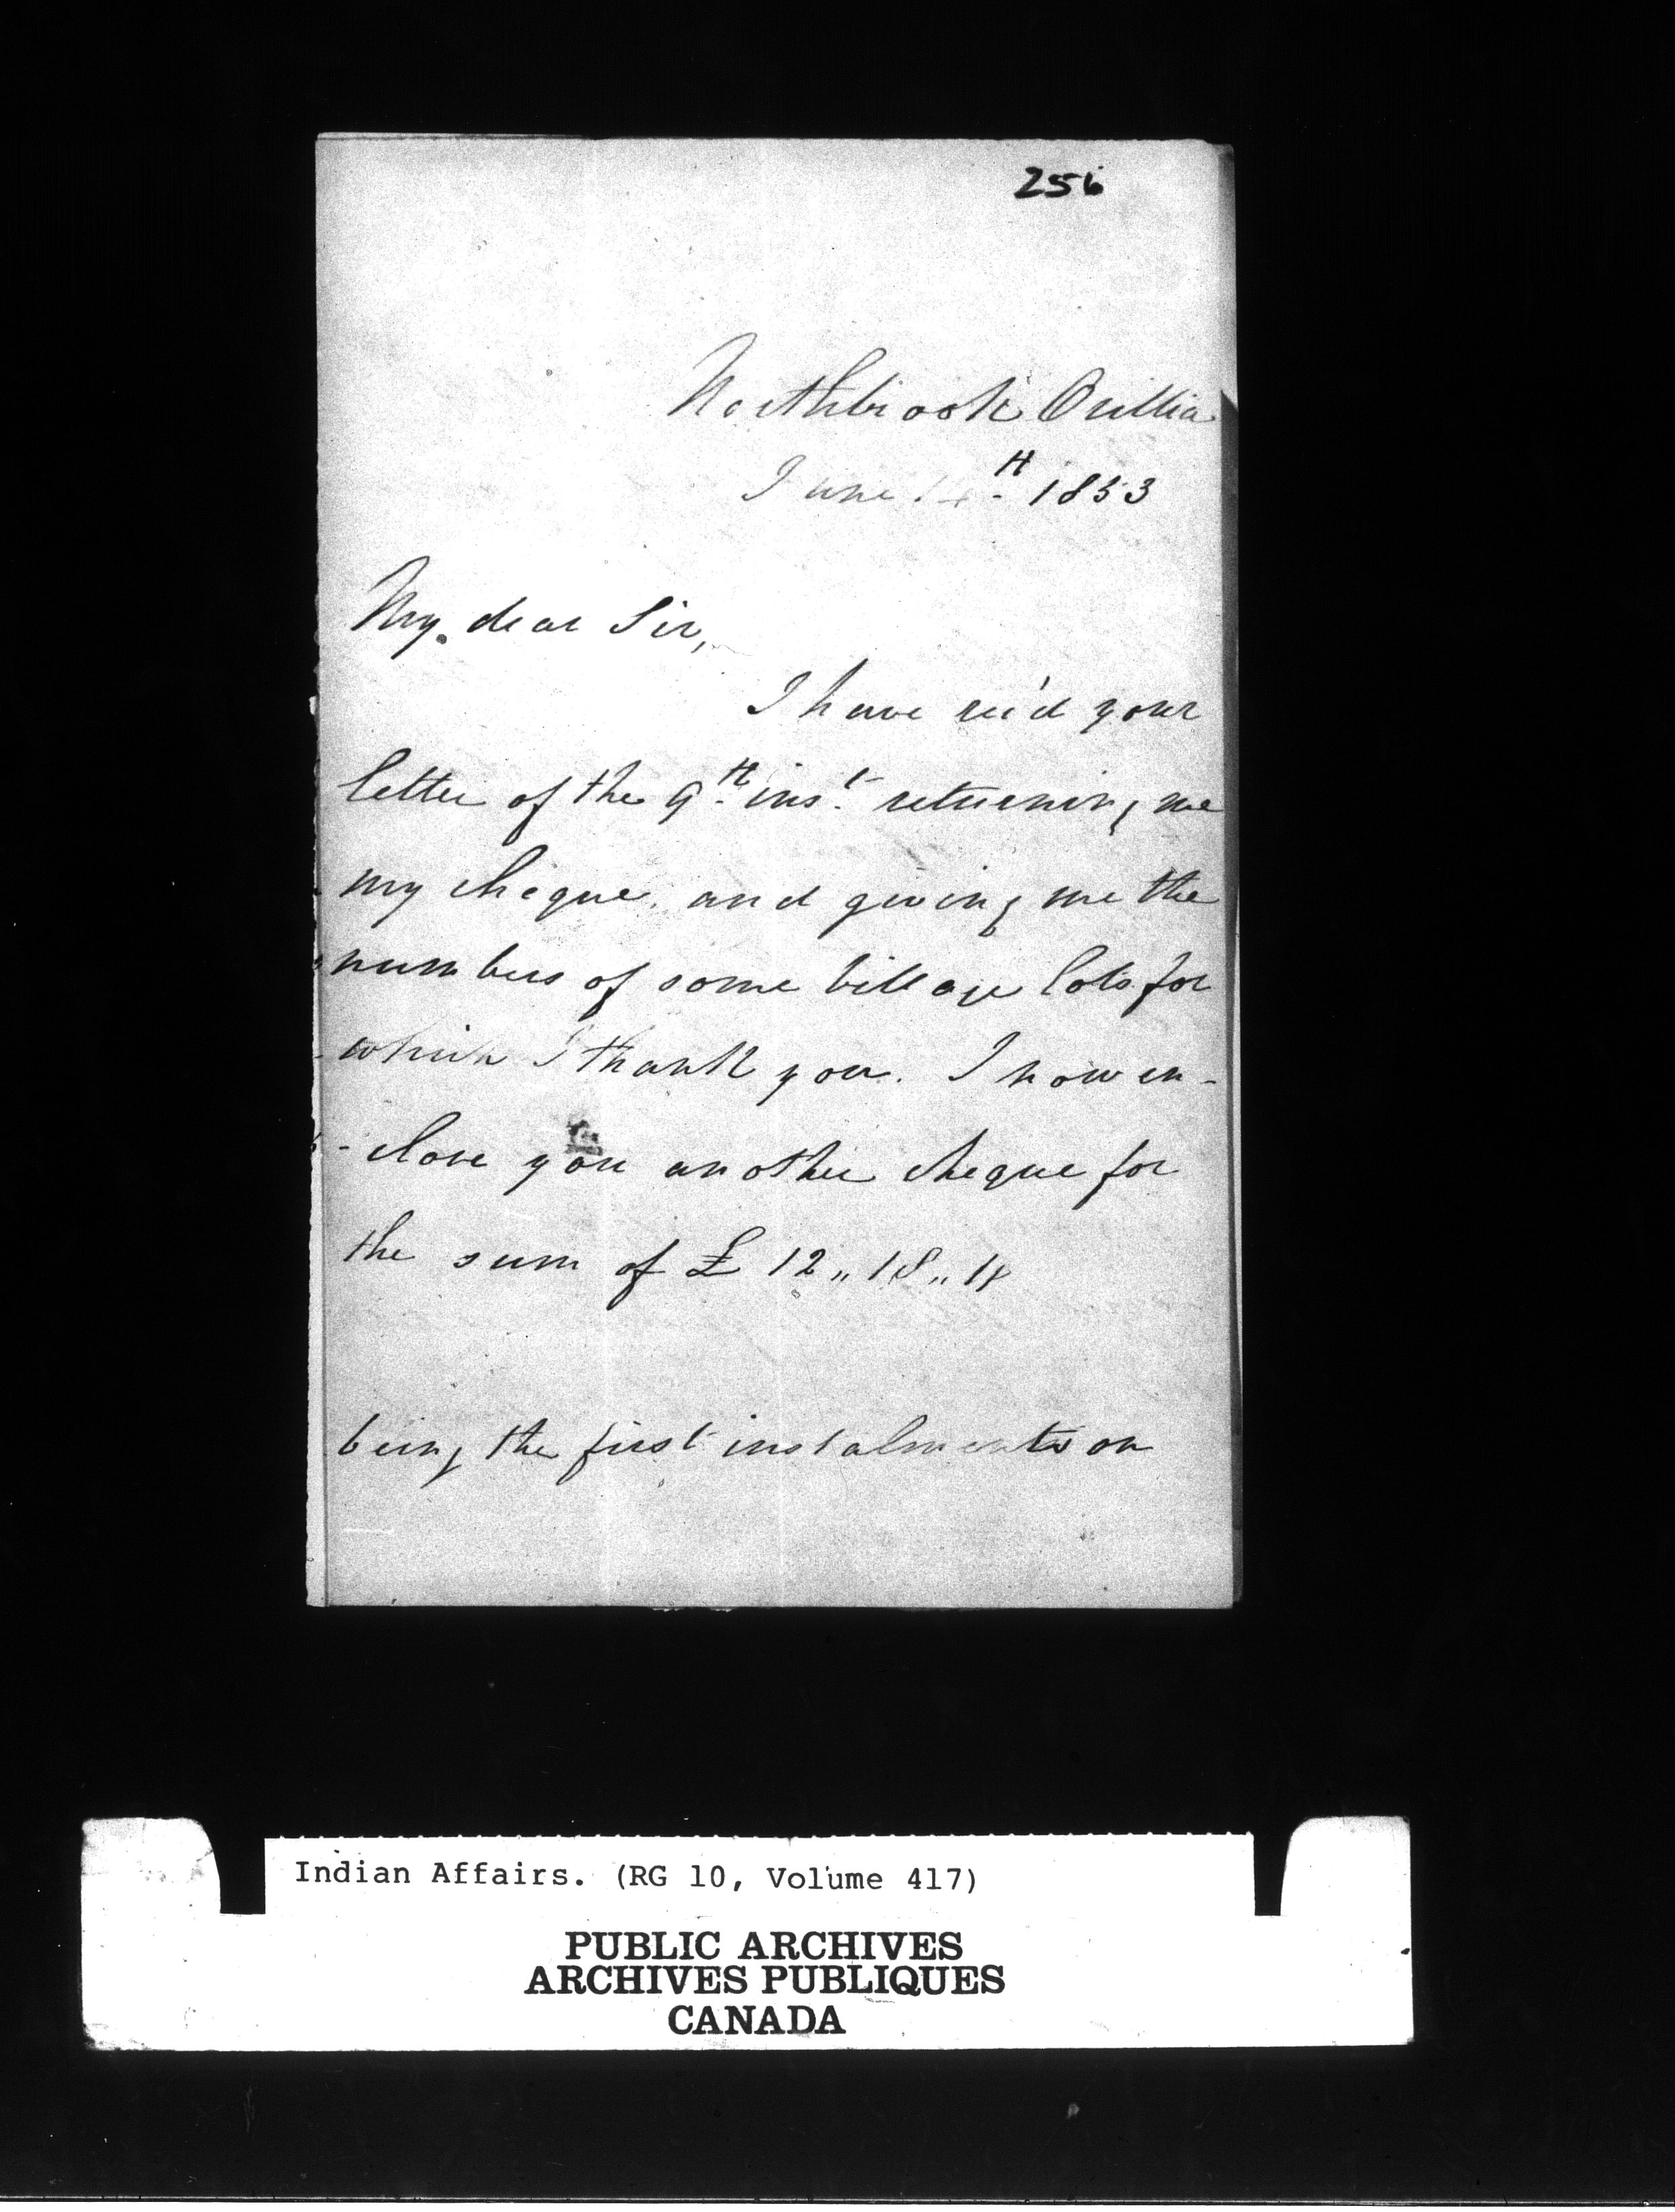 256
Northbrook Orillia
June 14th 1853
My dear Sir,
I have rec'd your
letter of the 9th inst returning me
my cheque, and giving me the
numbers of some village lots for
which I thank you. I now en-
-close you another cheque for
the sum of £ 12 „ 18 „ 4
being the first instalments on
Indian Affairs. (RG 10, Volume 417)
PUBLIC ARCHIVES
ARCHIVES PUBLIQUES
CANADA